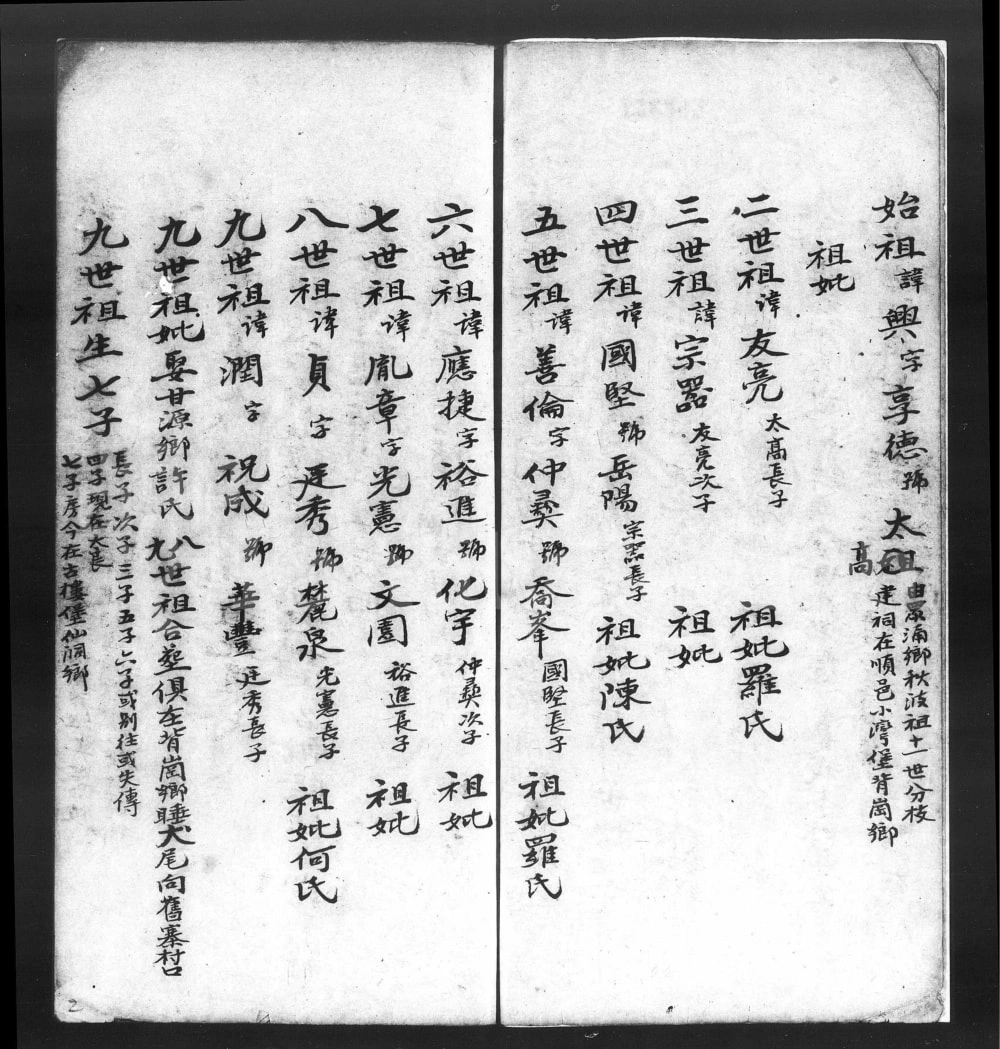 始祖諱興字享德號太祖高
由眾涌鄉秋波祖十一世分枝
建祠在順邑小灣堡背崗鄉
祖妣
二世祖諱友亮太高長子 祖妣羅氏
三世祖諱宗器友亮次子 祖妣
四世祖諱國堅號岳陽宗器長子 祖妣陳氏
五世祖諱善倫字仲彝號喬峯國堅長子 祖妣羅氏
六世祖諱應捷字裕進號化宇仲彝次子 祖妣
七世祖諱胤章字光憲號文園裕進長子 祖妣
八世祖諱貞字廷秀號麓泉光憲長子 祖妣何氏
九世祖諱潤字祝成號華豐廷秀長子
九世祖妣娶甘源鄉許氏 八九世祖合塟俱在背崗鄉睡犬尾向舊寨村口
九世祖生七子
長子次子三子五子六子或别往或失傳
四子現在大良
七子房今在古樓堡仙洞鄉
2